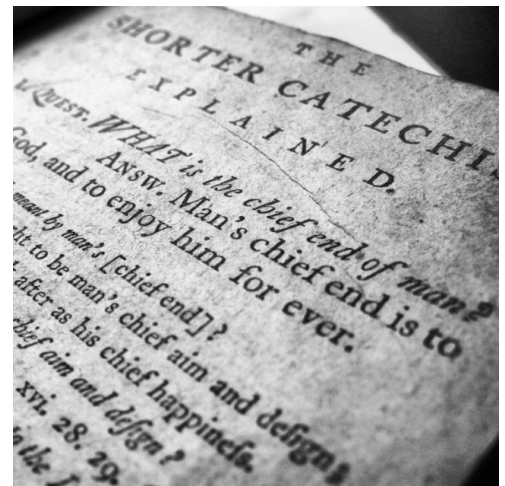 THE
SHORTER CATECHIS
EXPLAINED.
QUEST. WHAT is the chief end of man?
ANSW. Man's chief end is to
God, and to enjoy him for ever.
meant by man's [chief end]?
ht to be man's chief aim and deſign;
after as his chief happineſs.
chief aim and deſign?
xvi. 28. 29.
in the